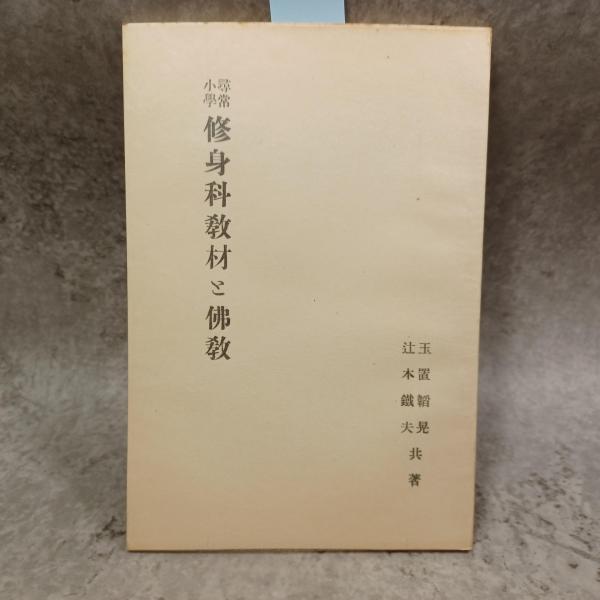 尋常
小學
修身科敎材と佛敎
玉置韜晃
辻木鐵夫
共著